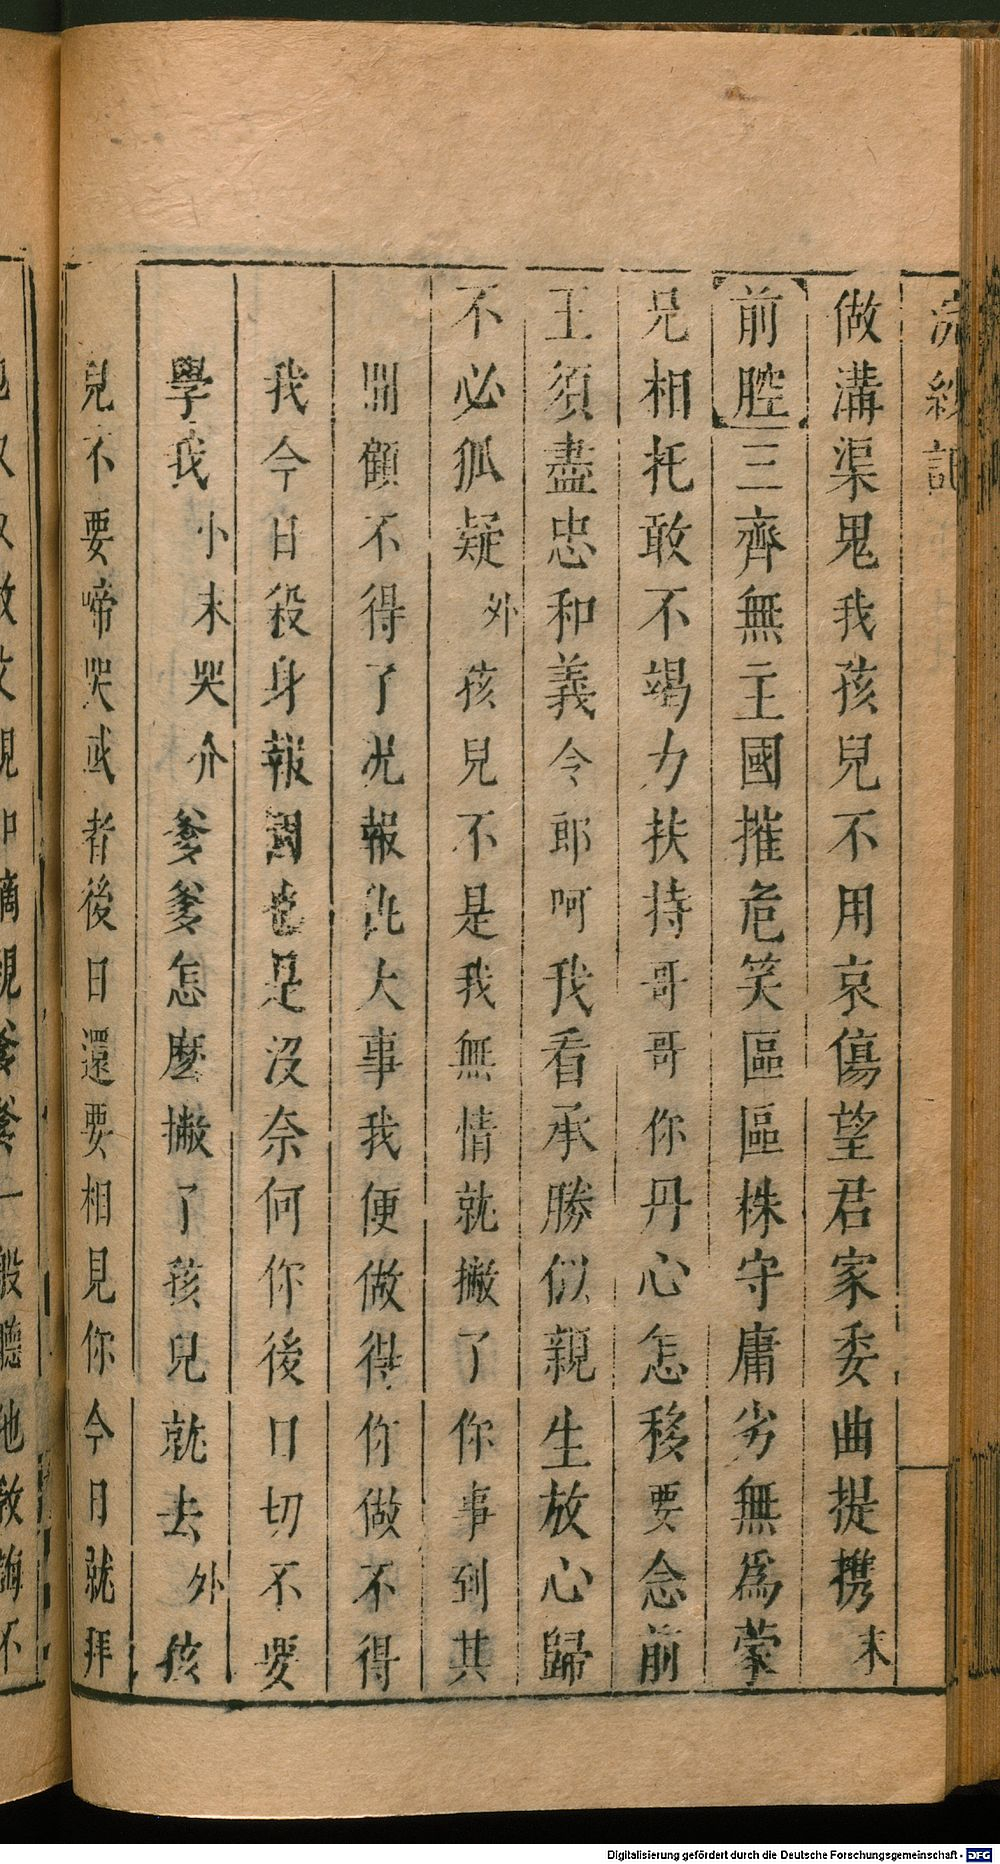 浣紗記
做溝渠鬼我孩兒不用哀傷望君家委曲提携末
前腔三齊無主國摧危笑區區株守庸劣無為蒙
兄相托敢不竭力扶持哥哥你丹心怎移要念前
王須盡忠和義令郎呵我看承勝似親生放心歸
不必狐疑外孩兒不是我無情就撇了你事到其
間顧不得了况報此大事我便做得你做不得
我今日殺身報國也是沒奈何你後日切不要
學我小末哭介爹爹怎麽撇了孩兒就去外孩
兒不要啼哭或者後日還要相見你今日就拜
Digitalisierung gefördert durch die Deutsche Forschungsgemeinschaft - DFG